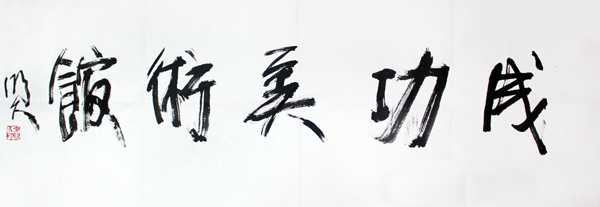 成功美術館